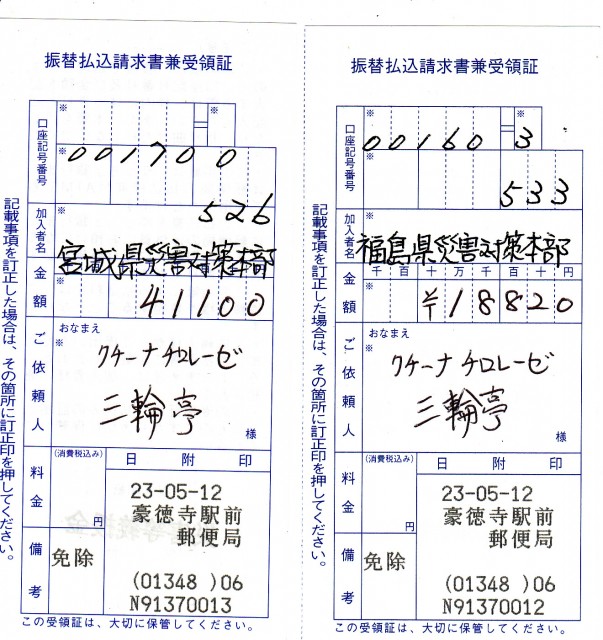 振替払込請求書兼受領証
口座記号番号
※
※
00170 0
※
526
加入者名
※
宮城県災害対策本部
金額
※
41100
ご依頼人
おなまえ
※
クチーナ チロレーゼ
三輪亭
様
料金
(消費税込み)
円
日附印
23-05-12
豪徳寺駅前
郵便局
(01348 )06
N91370013
備考
免除
記載事項を訂正した場合は、その箇所に訂正印を押してください。
この受領証は、大切に保管してください。
振替払込請求書兼受領証
口座記号番号
※
※
00160 3
※
533
加入者名
※
福島県災害対策本部
金額
千百十万千百十円
※
¥18820
ご依頼人
おなまえ
※
クチーナ チロレーゼ
三輪亭
様
料金
(消費税込み)
円
日附印
23-05-12
豪徳寺駅前
郵便局
(01348 )06
N91370012
備考
免除
記載事項を訂正した場合は、その箇所に訂正印を押してください。
この受領証は、大切に保管してください。